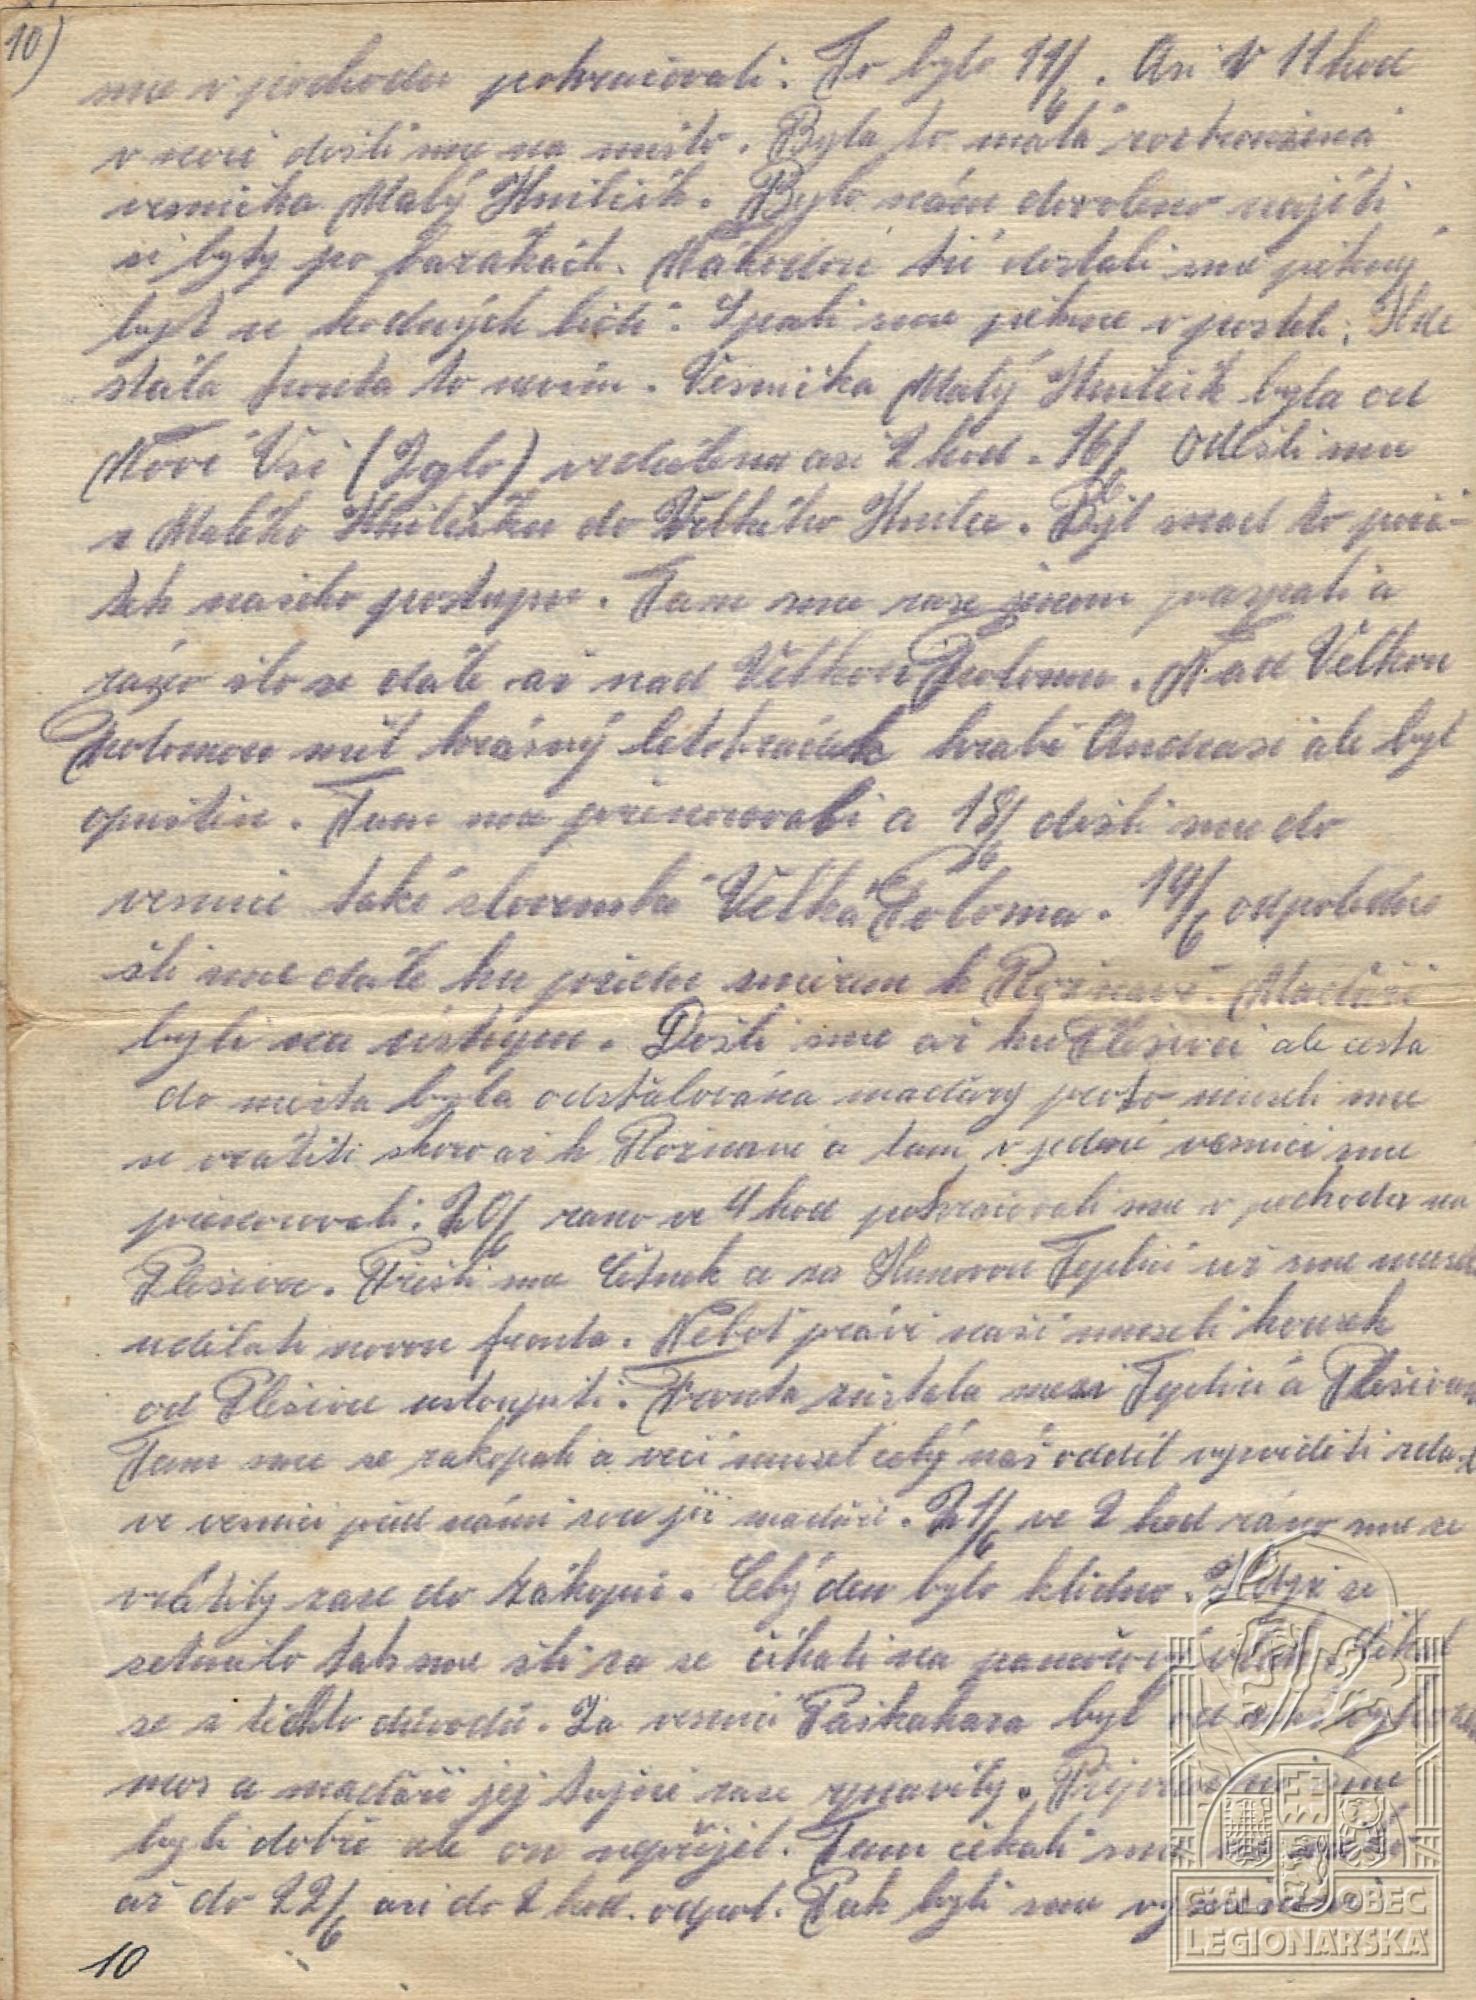 10)
sme v pochodu pokračovali. To bylo 14/6. Asi v 11 hod
v noci došli sme na místo. Byla to malá roztroušená
vesnička Malý Hnilčík. Bylo nám dovoleno najíti
si byty po barákách. Náhodou tři dostali sme pěkný
byt u hodných lidí. Spali sme pěkně v posteli. Kde
stála fronta to nevím. Vesnička Malý Hnilčík byla od
Nové Vsi (Iglo) vzdálena asi 2 hod. 16/6 odešli sme
z Malého Hnilčíku do Velkého Hnilce. Byl snad to počá-
tek našeho postupu. Tam sme zase jenom pospali a
ráno šlo se dále až nad Velkou Polomu. Nad Velkou
Polomou měl krásný letohrádek hrabě Andrasi ale byl
opuštěn. Tam sme přenocovali a 18/6 došli sme do
vesnice také slovenské Velká Poloma. 19/6 odpoledne
šli sme dále ku předu směrem k Rožňavě. Maďaři
byli na ústupu. Došli sme až ku Plešivci ale cesta
do města byla odstřelována maďary proto museli sme
se vrátiti skoro až k Rožnavě a tam v jedné vesnici sme
přenocovali. 20/6 ráno ve 4 hod pokračovali sme v pochodu na
Plešivec. Přešli sme Čitnek a za Kunovou Teplicí už sme museli
udělati novou frontu. Neboť právě naši museli kousek
od Plešivce ustoupiti. Fronta zůstala mezi Teplicí a Plešivcem
Tam sme se zakopali a večí musel celý náš oddíl vyzvěděti zda-li
ve vesnici před námi sou již maďaři. 21/6 ve 2 hod ráno sme se
vrátily zase do zákopů. Celý den bylo klidno. Když se
setmělo tak sme šli za se čekati na
se z těchto důvodů. Za vesnicí Paškahaza byl od
mos a maďaři jej trhají zase spravily. sme
byli dobře ale on nepřijel. Tam čekali sme
až do 22/6 asi do 2 hod. odpol. Pak byli sme
10
ČSL. OBEC
LEGIONÁŘSKÁ